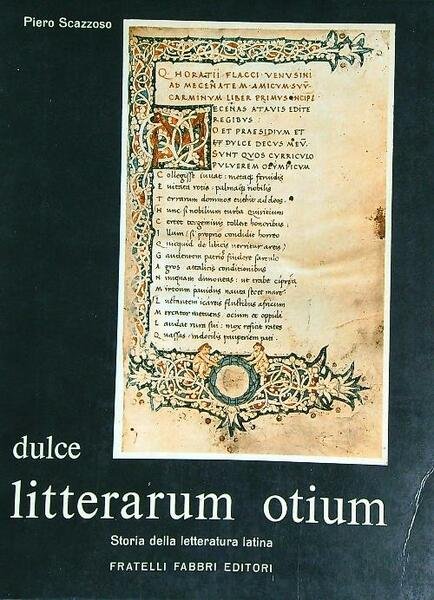 Piero Scazzoso
Q HORATII FLACCI VENUSINI
AD MECENATEM AMICUM SUU
CARMINUM LIBER PRIMUS INCIPI
ECENAS ATAVIS EDITE
REGIBUS
O ET PRAESIDIUM ET
DULCE DECUS MEU
SUNT QUOS CURRICULO
PULVEREM OLYMPICUM
Collegisse iuvat: metaque fervidis
Evitata rotis: palmaque nobilis
Terrarum dominos evehit ad deos.
Hunc si nobilium turba quiritium
Certet tergeminis tollere honoribus.
Illum si proprio condidit horreo
Quicquid de libicis verritur areis
Gaudentem patrios findere sarculo
Agros attalicis conditionibus
Nunquam dimoveas: ut trabe cipria
Mirtoum pavidus nauta secet mare
Luctantem icariis fluctibus africum
Mercator metuens: ocium et oppidi
Laudat rura sui: mox reficit rates
Quassas: indocilis pauperiem pati.
dulce
litterarum otium
Storia della letteratura latina
FRATELLI FABBRI EDITORI